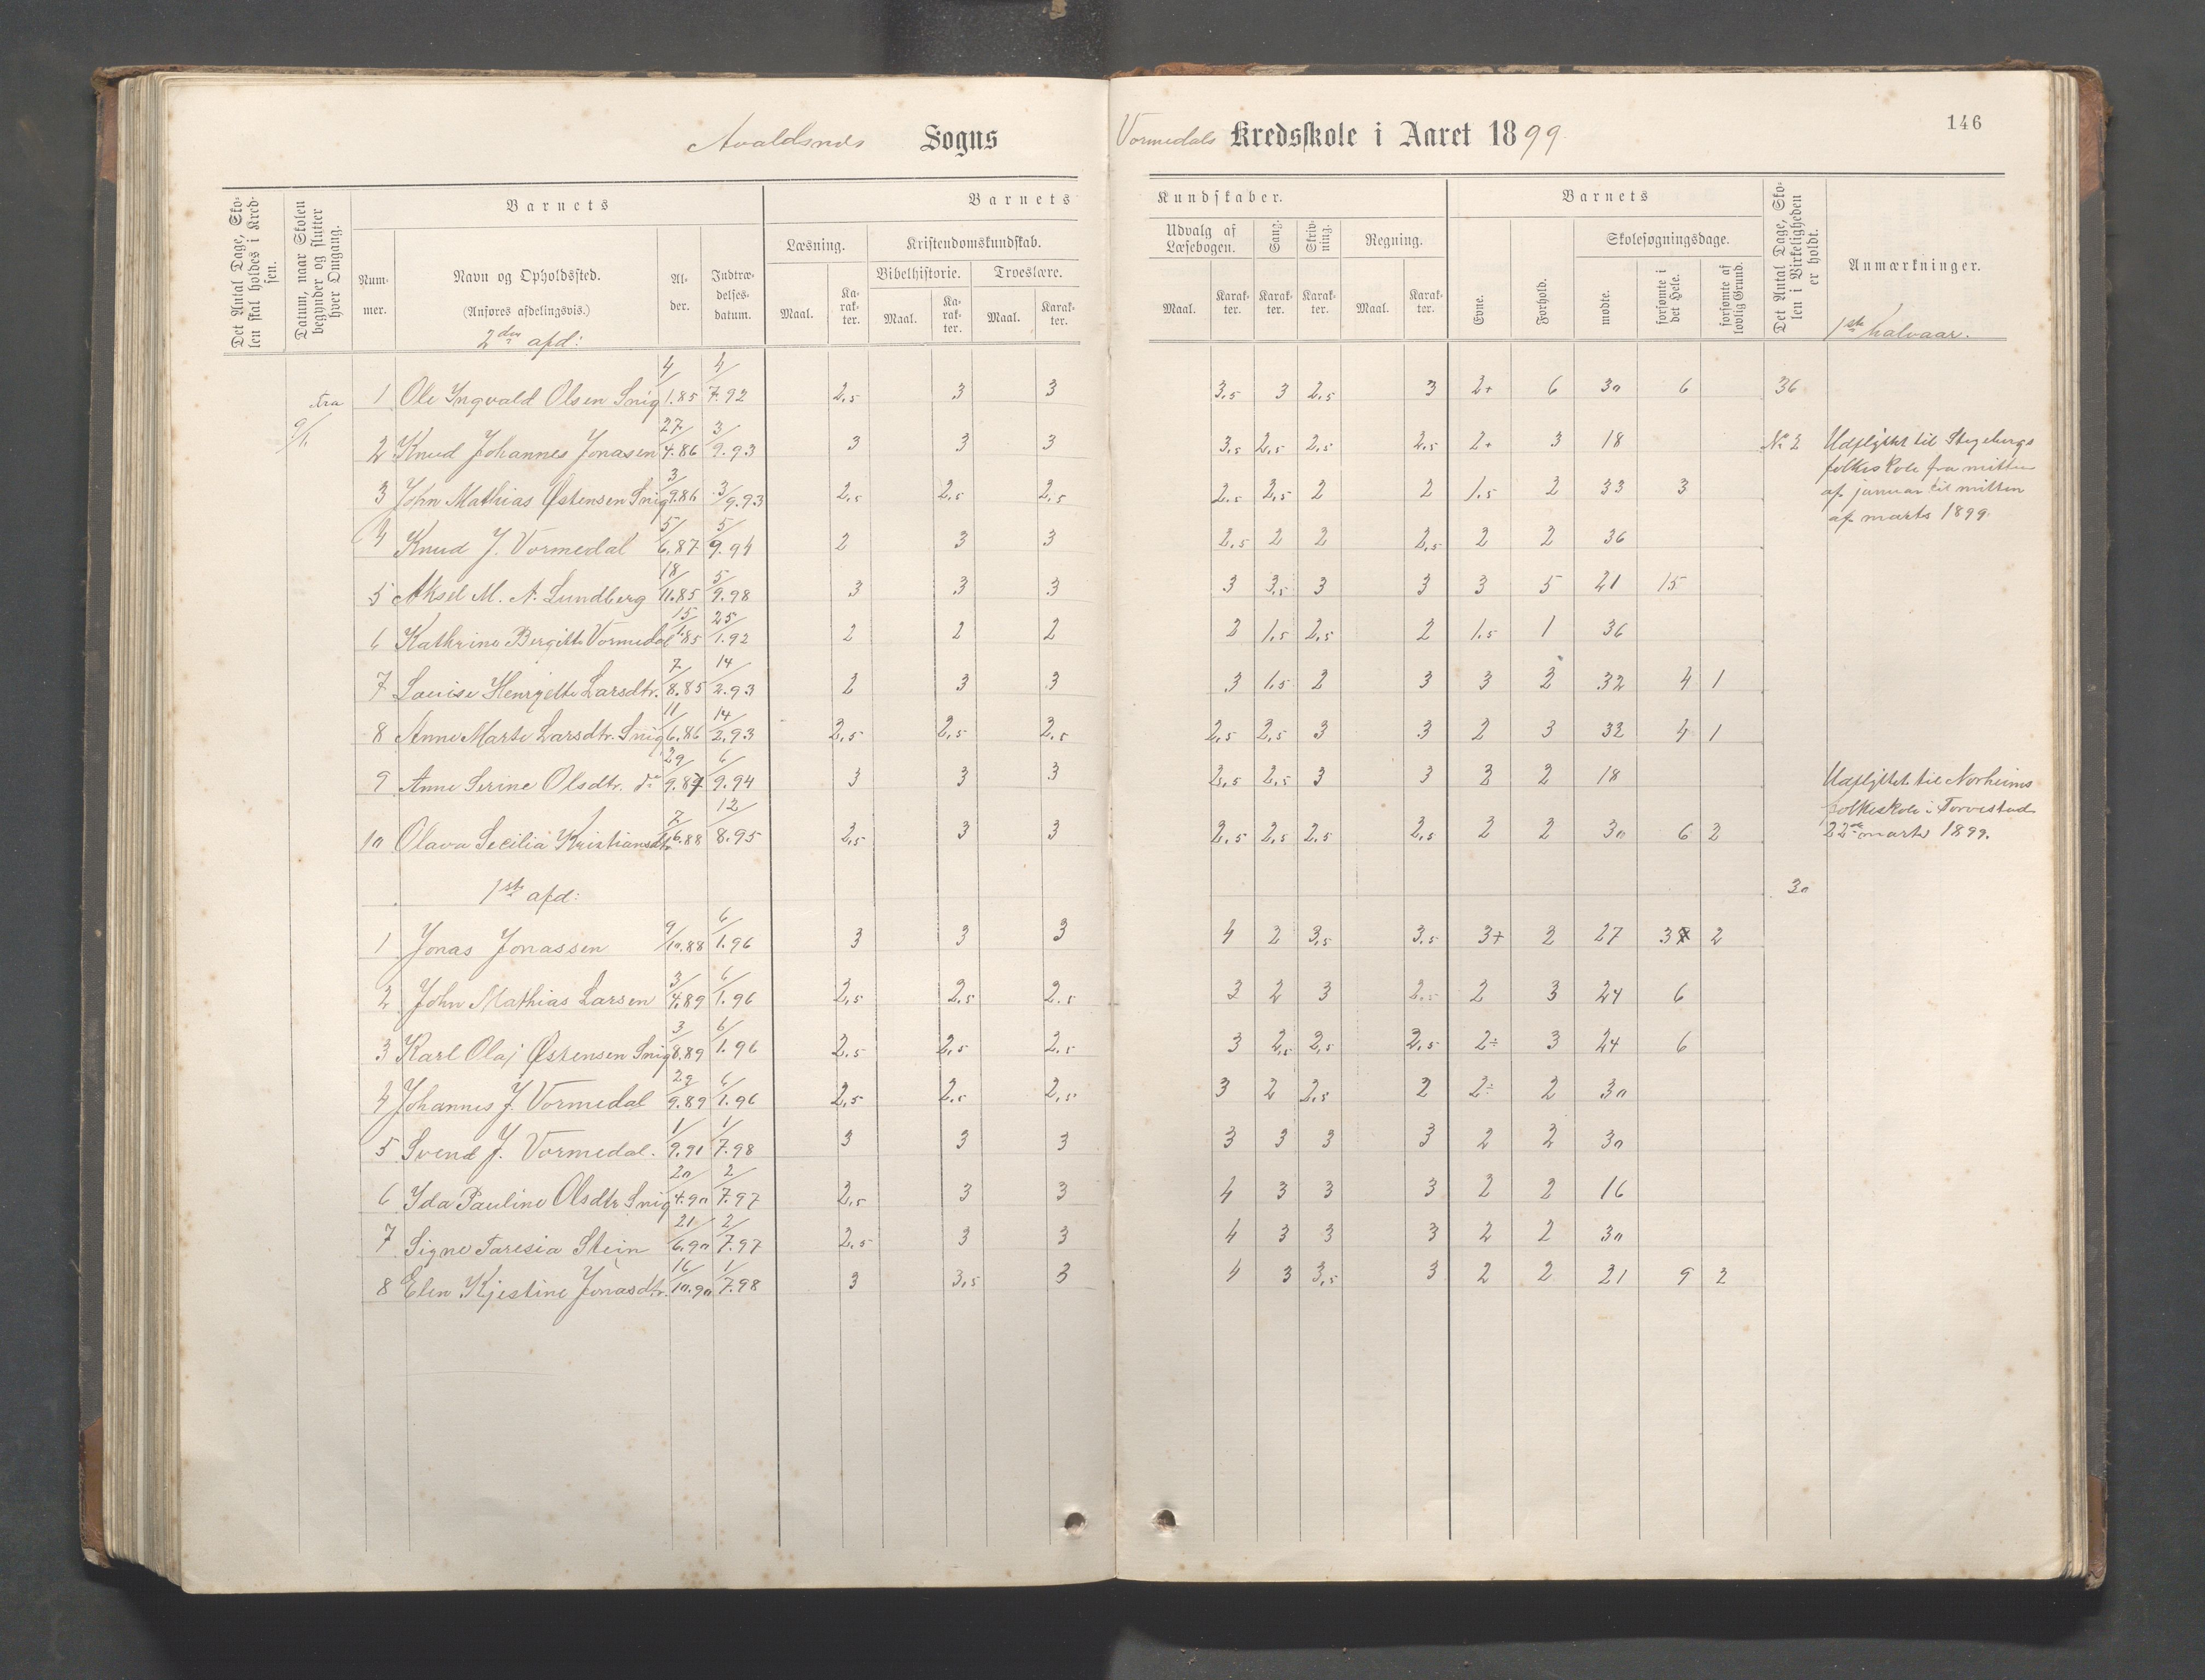 146
Avaldsnes Sogns Vormedals Kredsskole i Aaret 1899.
Det Antal Dage, Skolen skal holdes i Kredsen.
Datum, naar Skolen begynder og slutter hver Omgang.
Barnets
Barnets Kundskaber.
Barnets
Det Antal Dage, Skolen i Virkeligheden er holdt.
Anmærkninger.
Nummer.
Navn og Opholdssted.
(Anføres afdelingsvis.)
Alder.
Indtrædelsesdatum.
Læsning.
Kristendomskundskab.
Bibelhistorie.
Troeslære.
Udvalg af Læsebogen.
Sang.
Skrivning.
Regning.
Evne.
Forhold.
Skolesøgningsdage.
Maal. Karakter. Maal. Karakter. Maal. Karakter. Maal. Karakter. Karakter. Karakter. Maal. Karakter.
mødte.
forsømte i det Hele.
forsømte af lovlig Grund.
2den afd:
1ste halvaar.
fra 9/1
1 Ole Yngvald Olsen Snig 4/1.85 4/7.92 2,5 3 3 3,5 3 2,5 3 2+ 6 30 6 36
2 Knud Johannes Jonasen 27/4.86 3/9.93 3 3 3 3,5 2,5 2,5 2,5 2+ 3 18 No 2 Udflyttet til Stegebergs
folkeskole fra mitten
3 John Mathias Østensen Snig 3/9.86 3/9.93 2,5 2,5 2,5 2,5 2,5 2 2 1,5 2 33 3 af januar til mitten
af marts 1899.
4 Knud J. Vormedal 5/6.87 5/9.94 2 3 3 2,5 2 2 2,5 2 2 36
5 Aksel M. A. Lundberg 18/11.85 5/9.98 3 3 3 3 3,5 3 3 3 5 21 15
6 Kathrine Bergitte Vormedal 15/1.85 25/1.92 2 2 2 2 1,5 2,5 2 1,5 1 36
7 Louise Henryette Larsdtr. 7/8.85 14/2.93 2 3 3 3 1,5 2 3 3 2 32 4 1
8 Anne Marte Larsdtr. Snig 11/6.86 14/2.93 2,5 2,5 2,5 2,5 2,5 3 3 2 3 32 4 1
9 Anne Serine Olsdtr. do 29/9.87 6/9.94 3 3 3 2,5 2,5 3 3 3 2 18 Udflyttet til Norheims
folkeskole i Torvestad
10 Olava Secilia Kristiansdtr 7/6.88 12/8.95 2,5 3 3 2,5 2,5 2,5 2,5 2 2 30 6 2 22de marts 1899.
1ste afd: 30
1 Jonas Jonassen 9/10.88 6/1.96 3 3 3 4 2 3,5 3,5 3+ 2 27 3 2
2 John Mathias Larsen 3/4.89 6/1.96 2,5 2,5 2,5 3 2 3 2,5 2 3 24 6
3 Karl Olaj Østensen Snig 3/8.89 6/1.96 2,5 2,5 2,5 3 2,5 2,5 2,5 2÷ 3 24 6
4 Johannes J. Vormedal 29/9.89 6/1.96 2,5 2,5 2,5 3 2 2,5 2 2÷ 2 30
5 Svend J. Vormedal. 1/9.91 1/7.98 3 3 3 3 3 3 3 2 2 30
6 Yda Pauline Olsdtr Snig 20/4.90 2/7.97 2,5 3 3 4 3 3 3 2 2 16
7 Signe Taresia Stein 21/6.90 2/7.97 2,5 3 3 4 3 3 3 2 2 30
8 Elen Kjestine Jonasdtr. 16/10.90 1/7.98 3 3,5 3 4 3 3,5 3 2 2 21 9 2